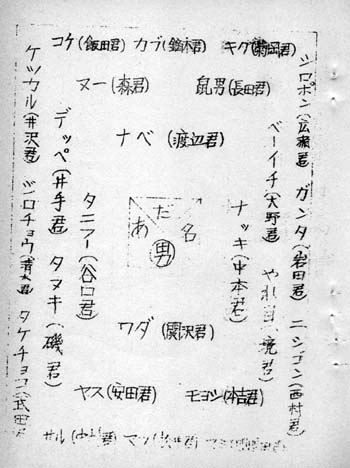 コケ(飯田君) カブ(鏑木君) キク(菊岡君)
ヌー(森君) 鼠男(長田君)
ナベ(渡辺君)
シロポン(広瀬君) ガンタ(岩田君) ニシゴン(西村君)
ベーイチ(大野君) やれ目(境君)
ナッキ(中本君)
あだ名
男
タニアー(谷口君)
デッペ(井手君) タヌキ(磯君)
ケツカル(井沢君) シロチョウ(青木君) タケチョコ(武田
ワダ(関沢君)
ヤス(安田君) モヨシ(本吉君)
サル(中村君)